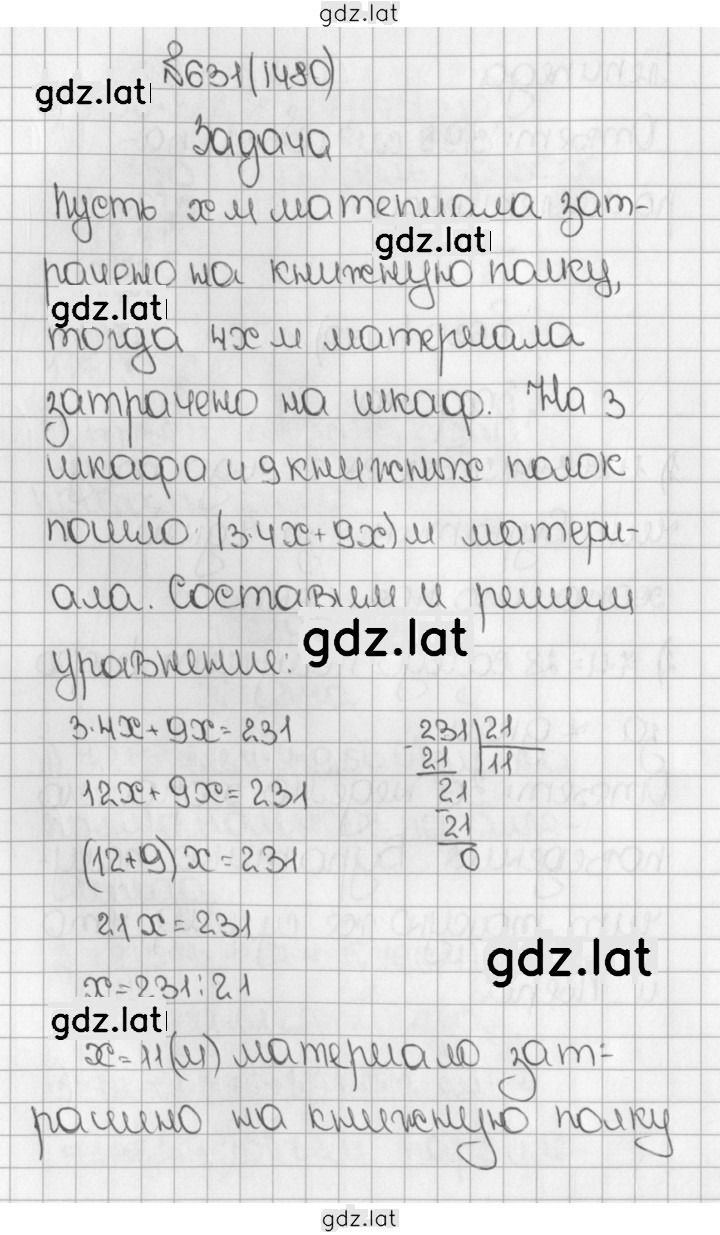 gdz.lat
№631(1480)
gdz.lat
Задача
Пусть x м материала зат-
gdz.lat
рачено на книжную полку,
gdz.lat
тогда 4x м материала
затрачено на шкаф. На 3
шкафа и 9 книжных полок
пошло (3·4x+9x) м матери-
ала. Составим и решим
gdz.lat
уравнение:
3·4x+9x=231
12x+9x=231
(12+9)x=231
21x=231
x=231:21
231 21
21 11
21
21
0
gdz.lat
gdz.lat
x=11(м) материало зат-
рачино на книжную полку
gdz.lat